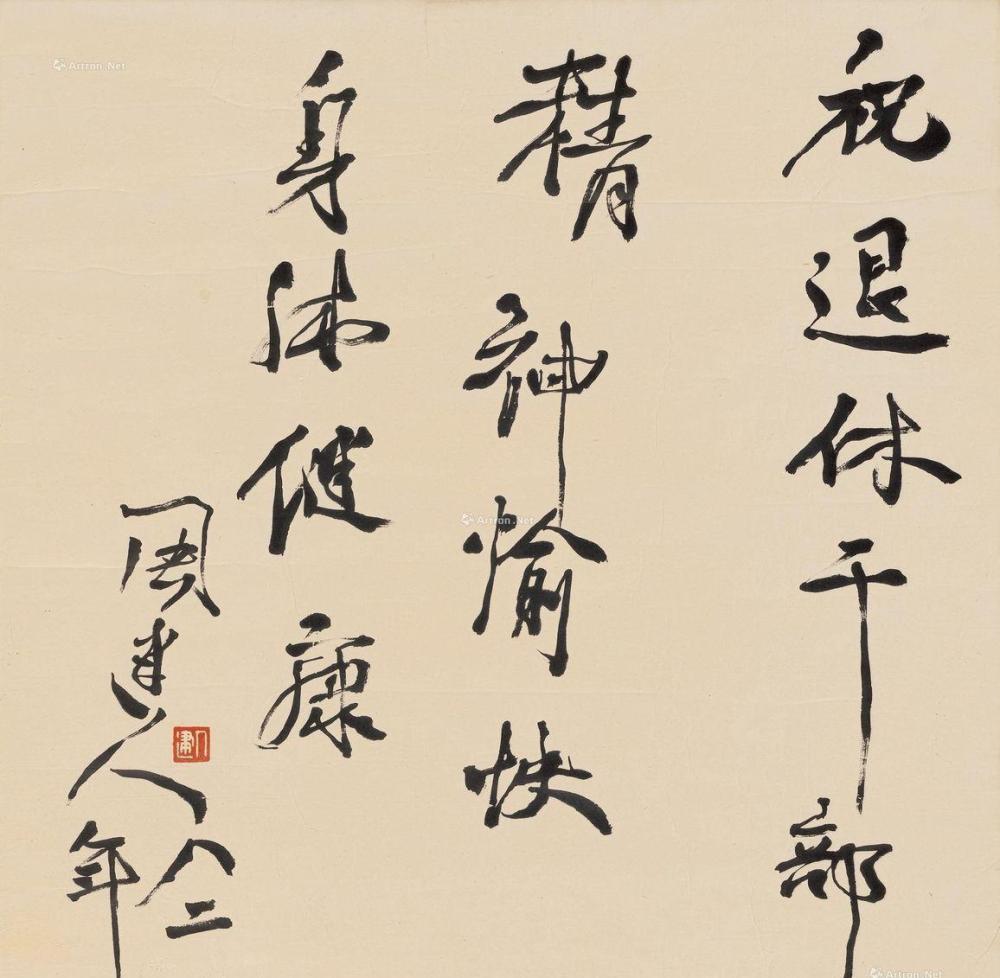 祝退休干部
精神愉快
身体健康
周建人
八二年
建人
Artron.Net
Artron.Net
Artron.Net